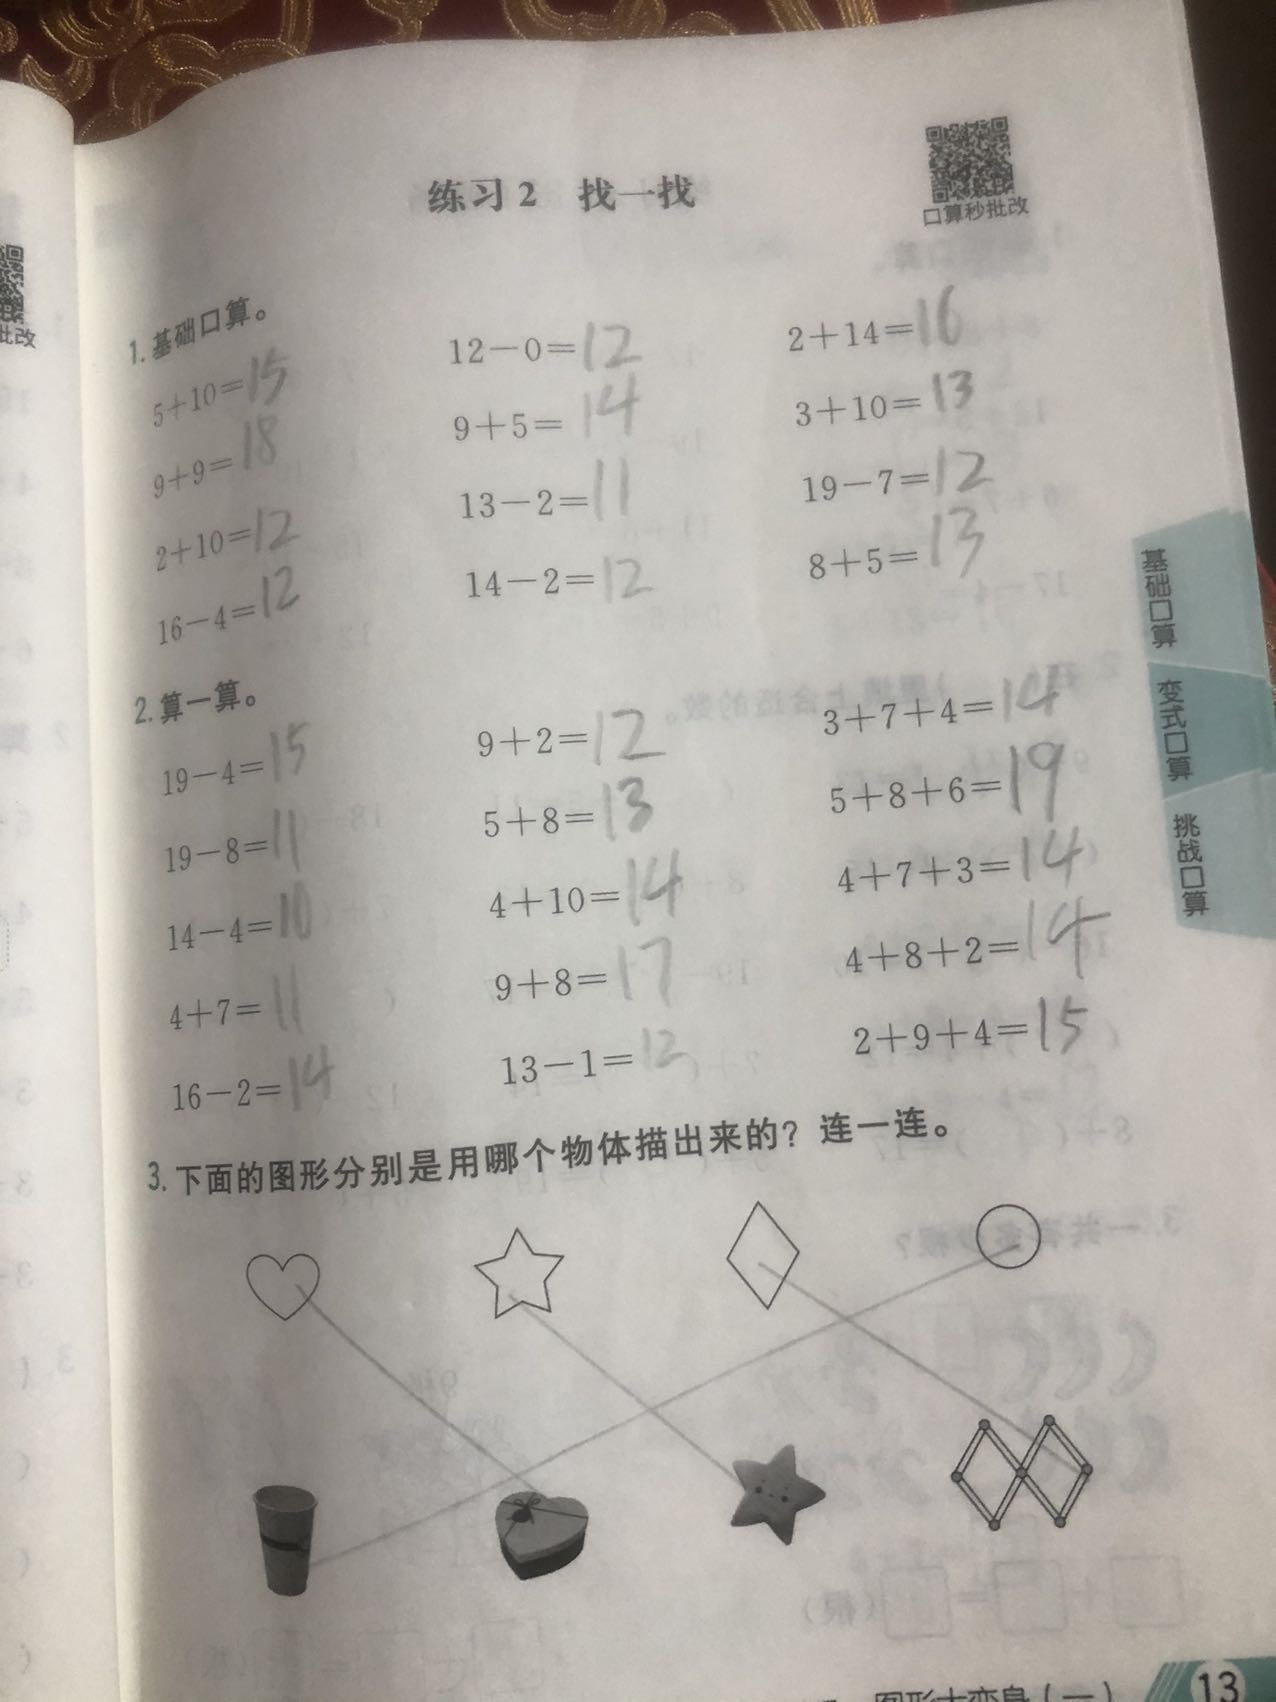 练习2 找一找
口算秒批改
批改
1. 基础口算。
5+10=15 12-0=12 2+14=16
9+9=18 9+5=14 3+10=13
2+10=12 13-2=11 19-7=12
16-4=12 14-2=12 8+5=13
2. 算一算。
19-4=15 9+2=12 3+7+4=14
19-8=11 5+8=13 5+8+6=19
14-4=10 4+10=14 4+7+3=14
4+7=11 9+8=17 4+8+2=14
16-2=14 13-1=12 2+9+4=15
3. 下面的图形分别是用哪个物体描出来的？连一连。
基础口算
变式口算
挑战口算
图形大变身(一) 13